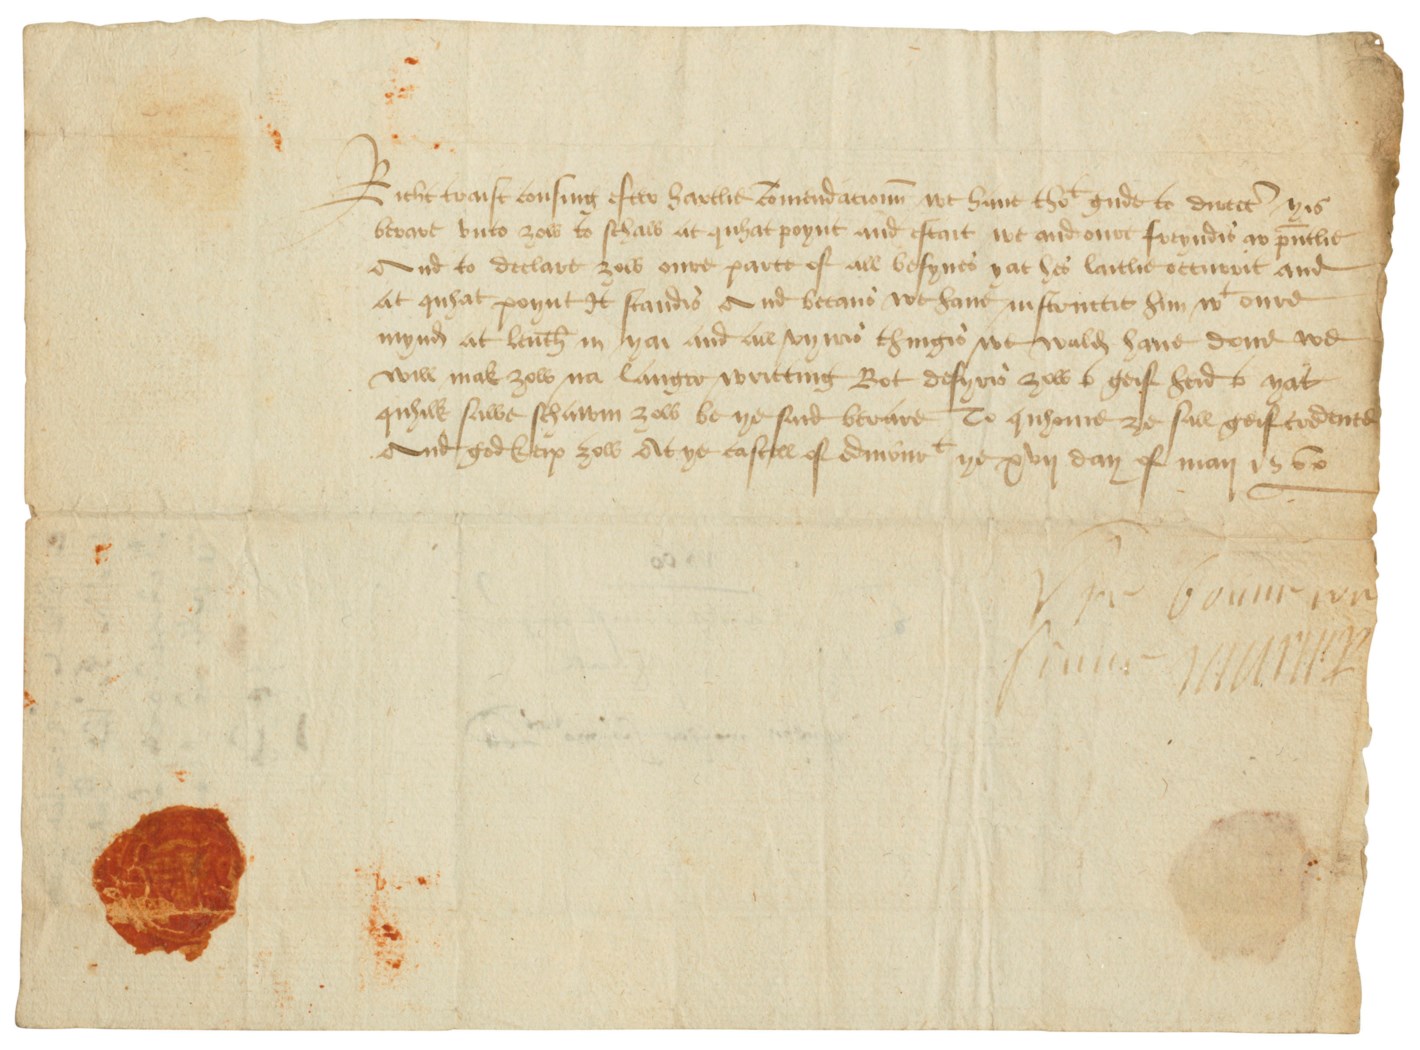 Richt traist cousing efter hartlie Comendatioun we haue thot gude to direct yis
berare vnto zow to schaw at quhat poynt and estait we and oure freyndis ar pntlie
And to declare zow oure parte of all besynes yat hes laitlie occurrit and
at quhat poynt It standis And becaus we haue instructit him wt oure
mynd at lenth in yai and all vyiris thingis we wald haue done we
will mak zow na langer writting Bot desyris zow to geif heid to yat
quhilk salbe schawin zow be ye said berare To quhome ze sall geif credence
And god keip zow At ye castell of edinbur t ye xvij day of maij 1560
bonne
Marie R